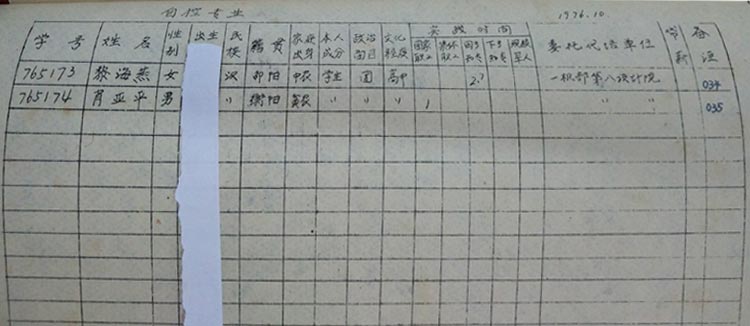 自控专业 1976.10.
学号 姓名 性别 出生 民族 籍贯 家庭出身 本人成分 政治面目 文化程度 实践时间 国家职工 集体职工 回乡知青 下乡知青 现役军人 委托代培单位 备注
765173 黎海燕 女 汉 邵阳 中农 学生 团 高中 2.7 一机部第八设计院 034
765174 肖亚平 男 〃 衡阳 贫农 〃 〃 〃 1 〃 〃 035